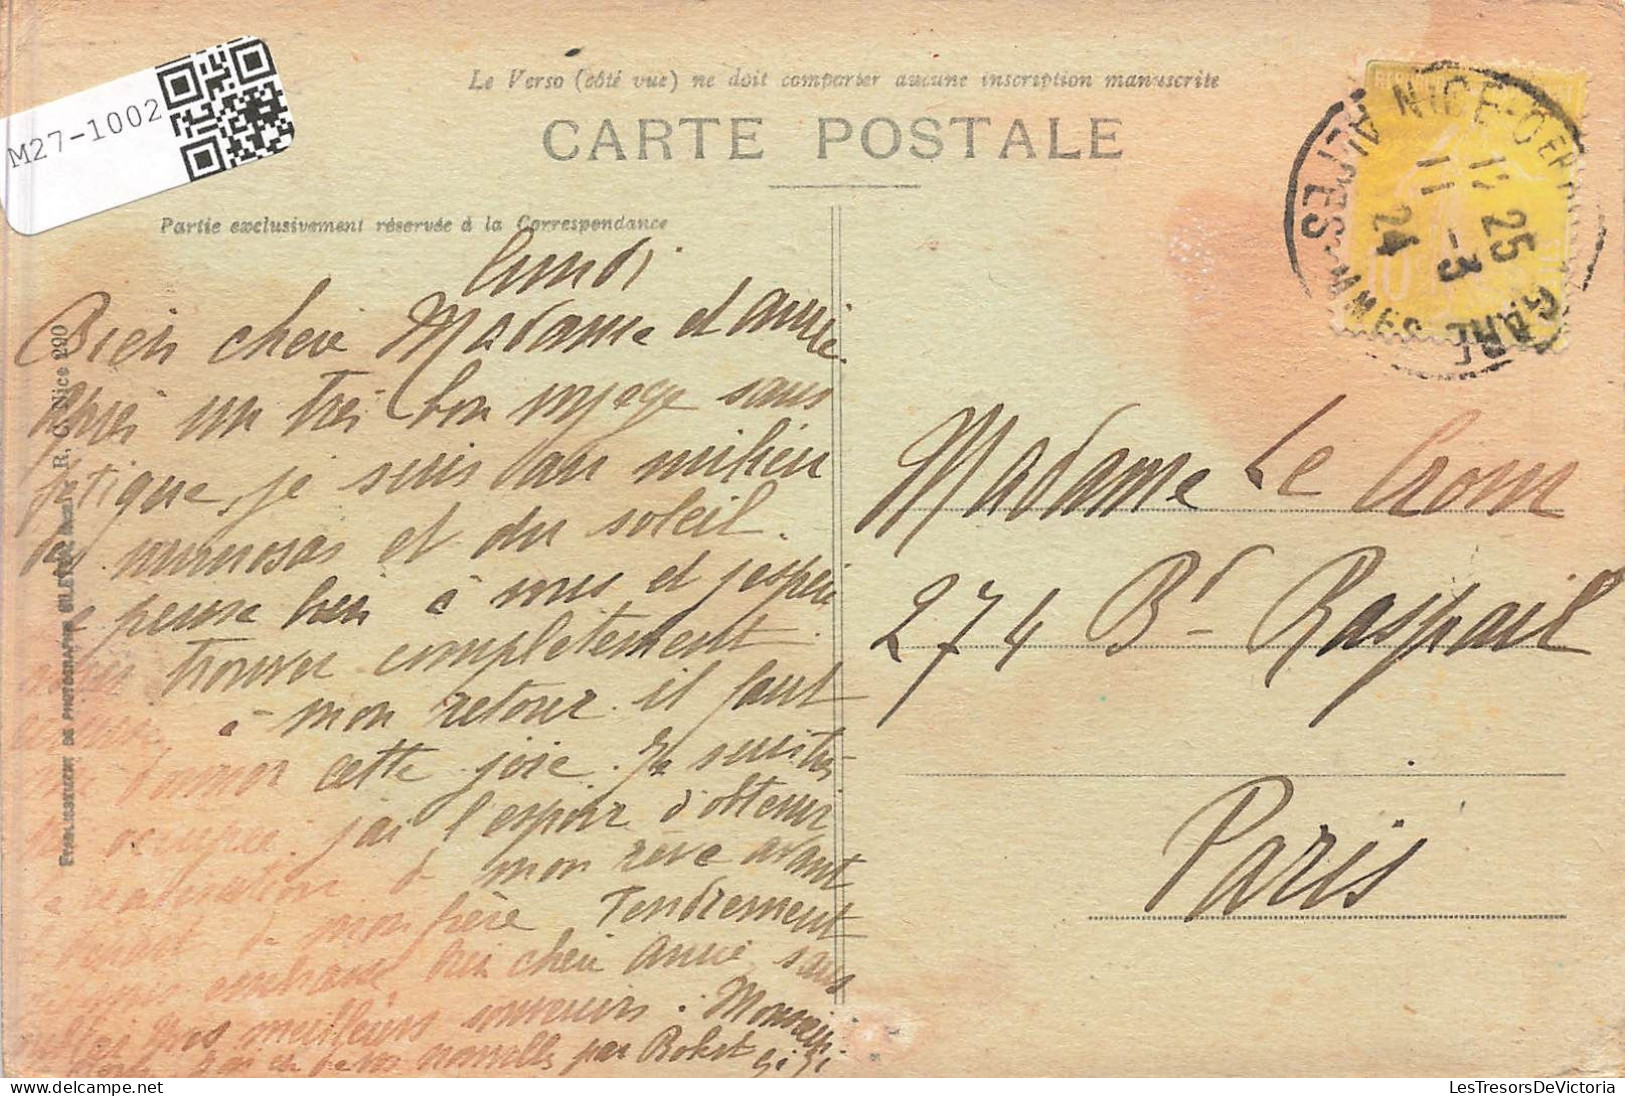 M27-1002
Le Verso (côté vue) ne doit comporter aucune inscription manuscrite
CARTE POSTALE
Partie exclusivement réservée à la Correspondance
NICE-DÉPART GARE
ALPES-MMES
12 25
11 -3
24
lundi
Bien chère Madame et amie
après un très bon voyage sans
fatigue, je suis au milieu
des mimosas et du soleil.
pense bien à vous et j'espère
vous trouver complètement
à mon retour. il faut
me donner cette joie. Je
occupée. j'ai l'espoir d'obtenir
la réalisation d mon rêve avant
le départ de mon frère Tendrement
embrasse bien chère amie sans
mes meilleurs souvenirs. Monsieur
de vos nouvelles par Robert
Madame Le Crom
274 Bd Raspail
Paris
ETABLISSEMENT DE PHOTOGRAPHIE GILETTA
R. C. Nice 290
LesTresorsDeVictoria.com